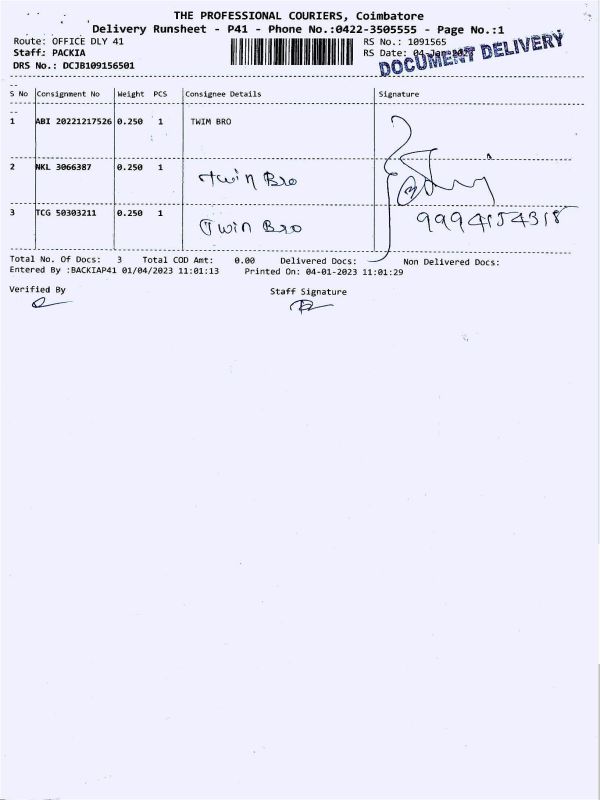 THE PROFESSIONAL COURIERS, Coimbatore
Delivery Runsheet - P41 - Phone No.:0422-3505555 - Page No.:1
Route: OFFICE DLY 41 RS No.: 1091565
Staff: PACKIA RS Date: 04-Jan-2023
DRS No.: DCJB109156501 DOCUMENT DELIVERY
S No Consignment No Weight PCS Consignee Details Signature
1 ABI 20221217526 0.250 1 TWIM BRO
2 NKL 3066387 0.250 1 Twin Bro
3 TCG 50303211 0.250 1 Twin Bro 9994154318
Total No. Of Docs: 3 Total COD Amt: 0.00 Delivered Docs: Non Delivered Docs:
Entered By :BACKIAP41 01/04/2023 11:01:13 Printed On: 04-01-2023 11:01:29
Verified By Staff Signature